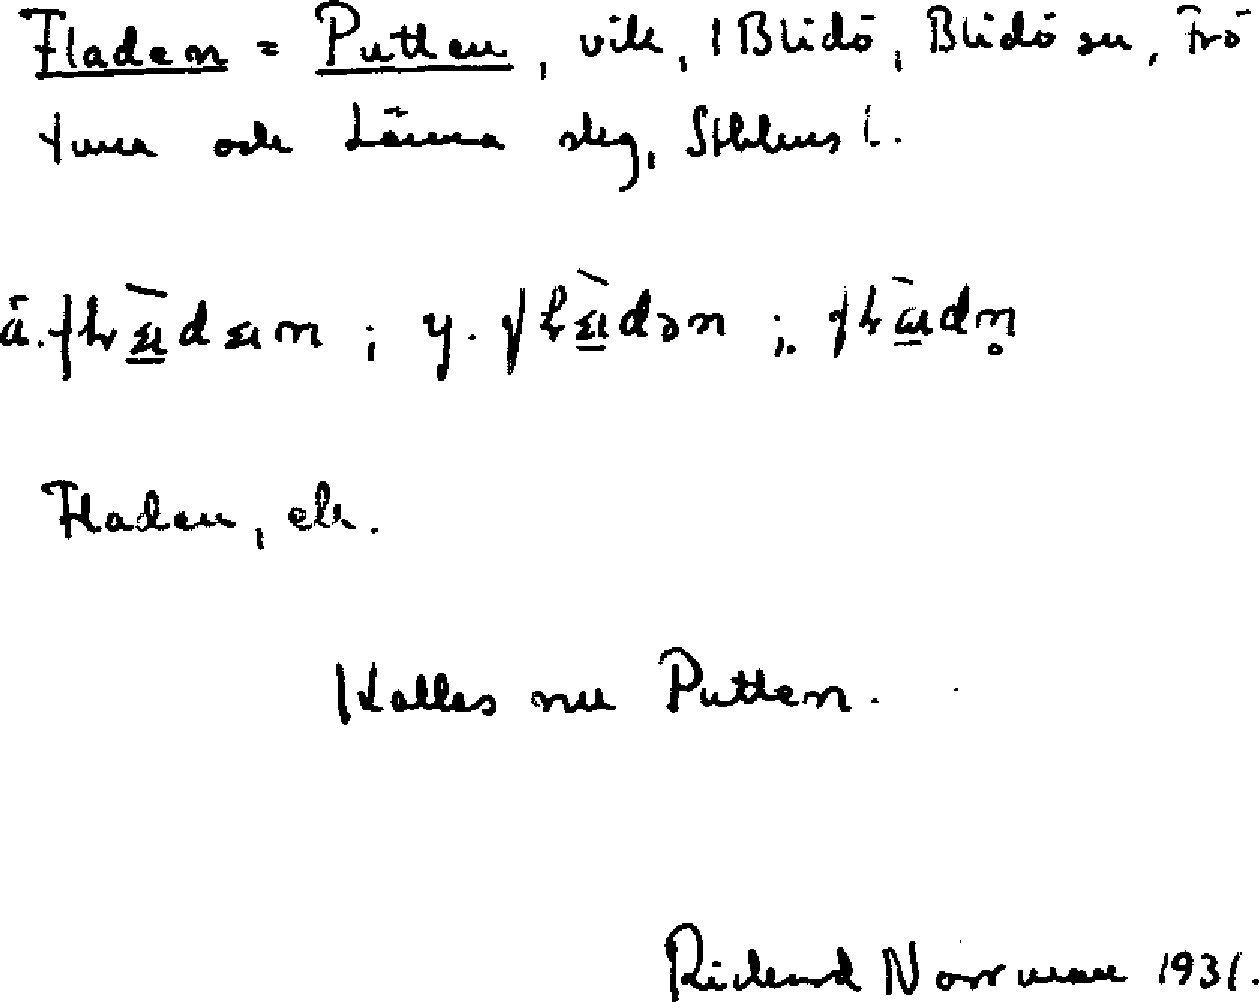 Fladen = Putten, vik, i Blidö, Blidö sn, Frö
tuna och Länna skg, Sthlms l.
ä. ; y. ;
Fladen, ele.
Kallas nu Putten.
Rickard Norrman 1931.